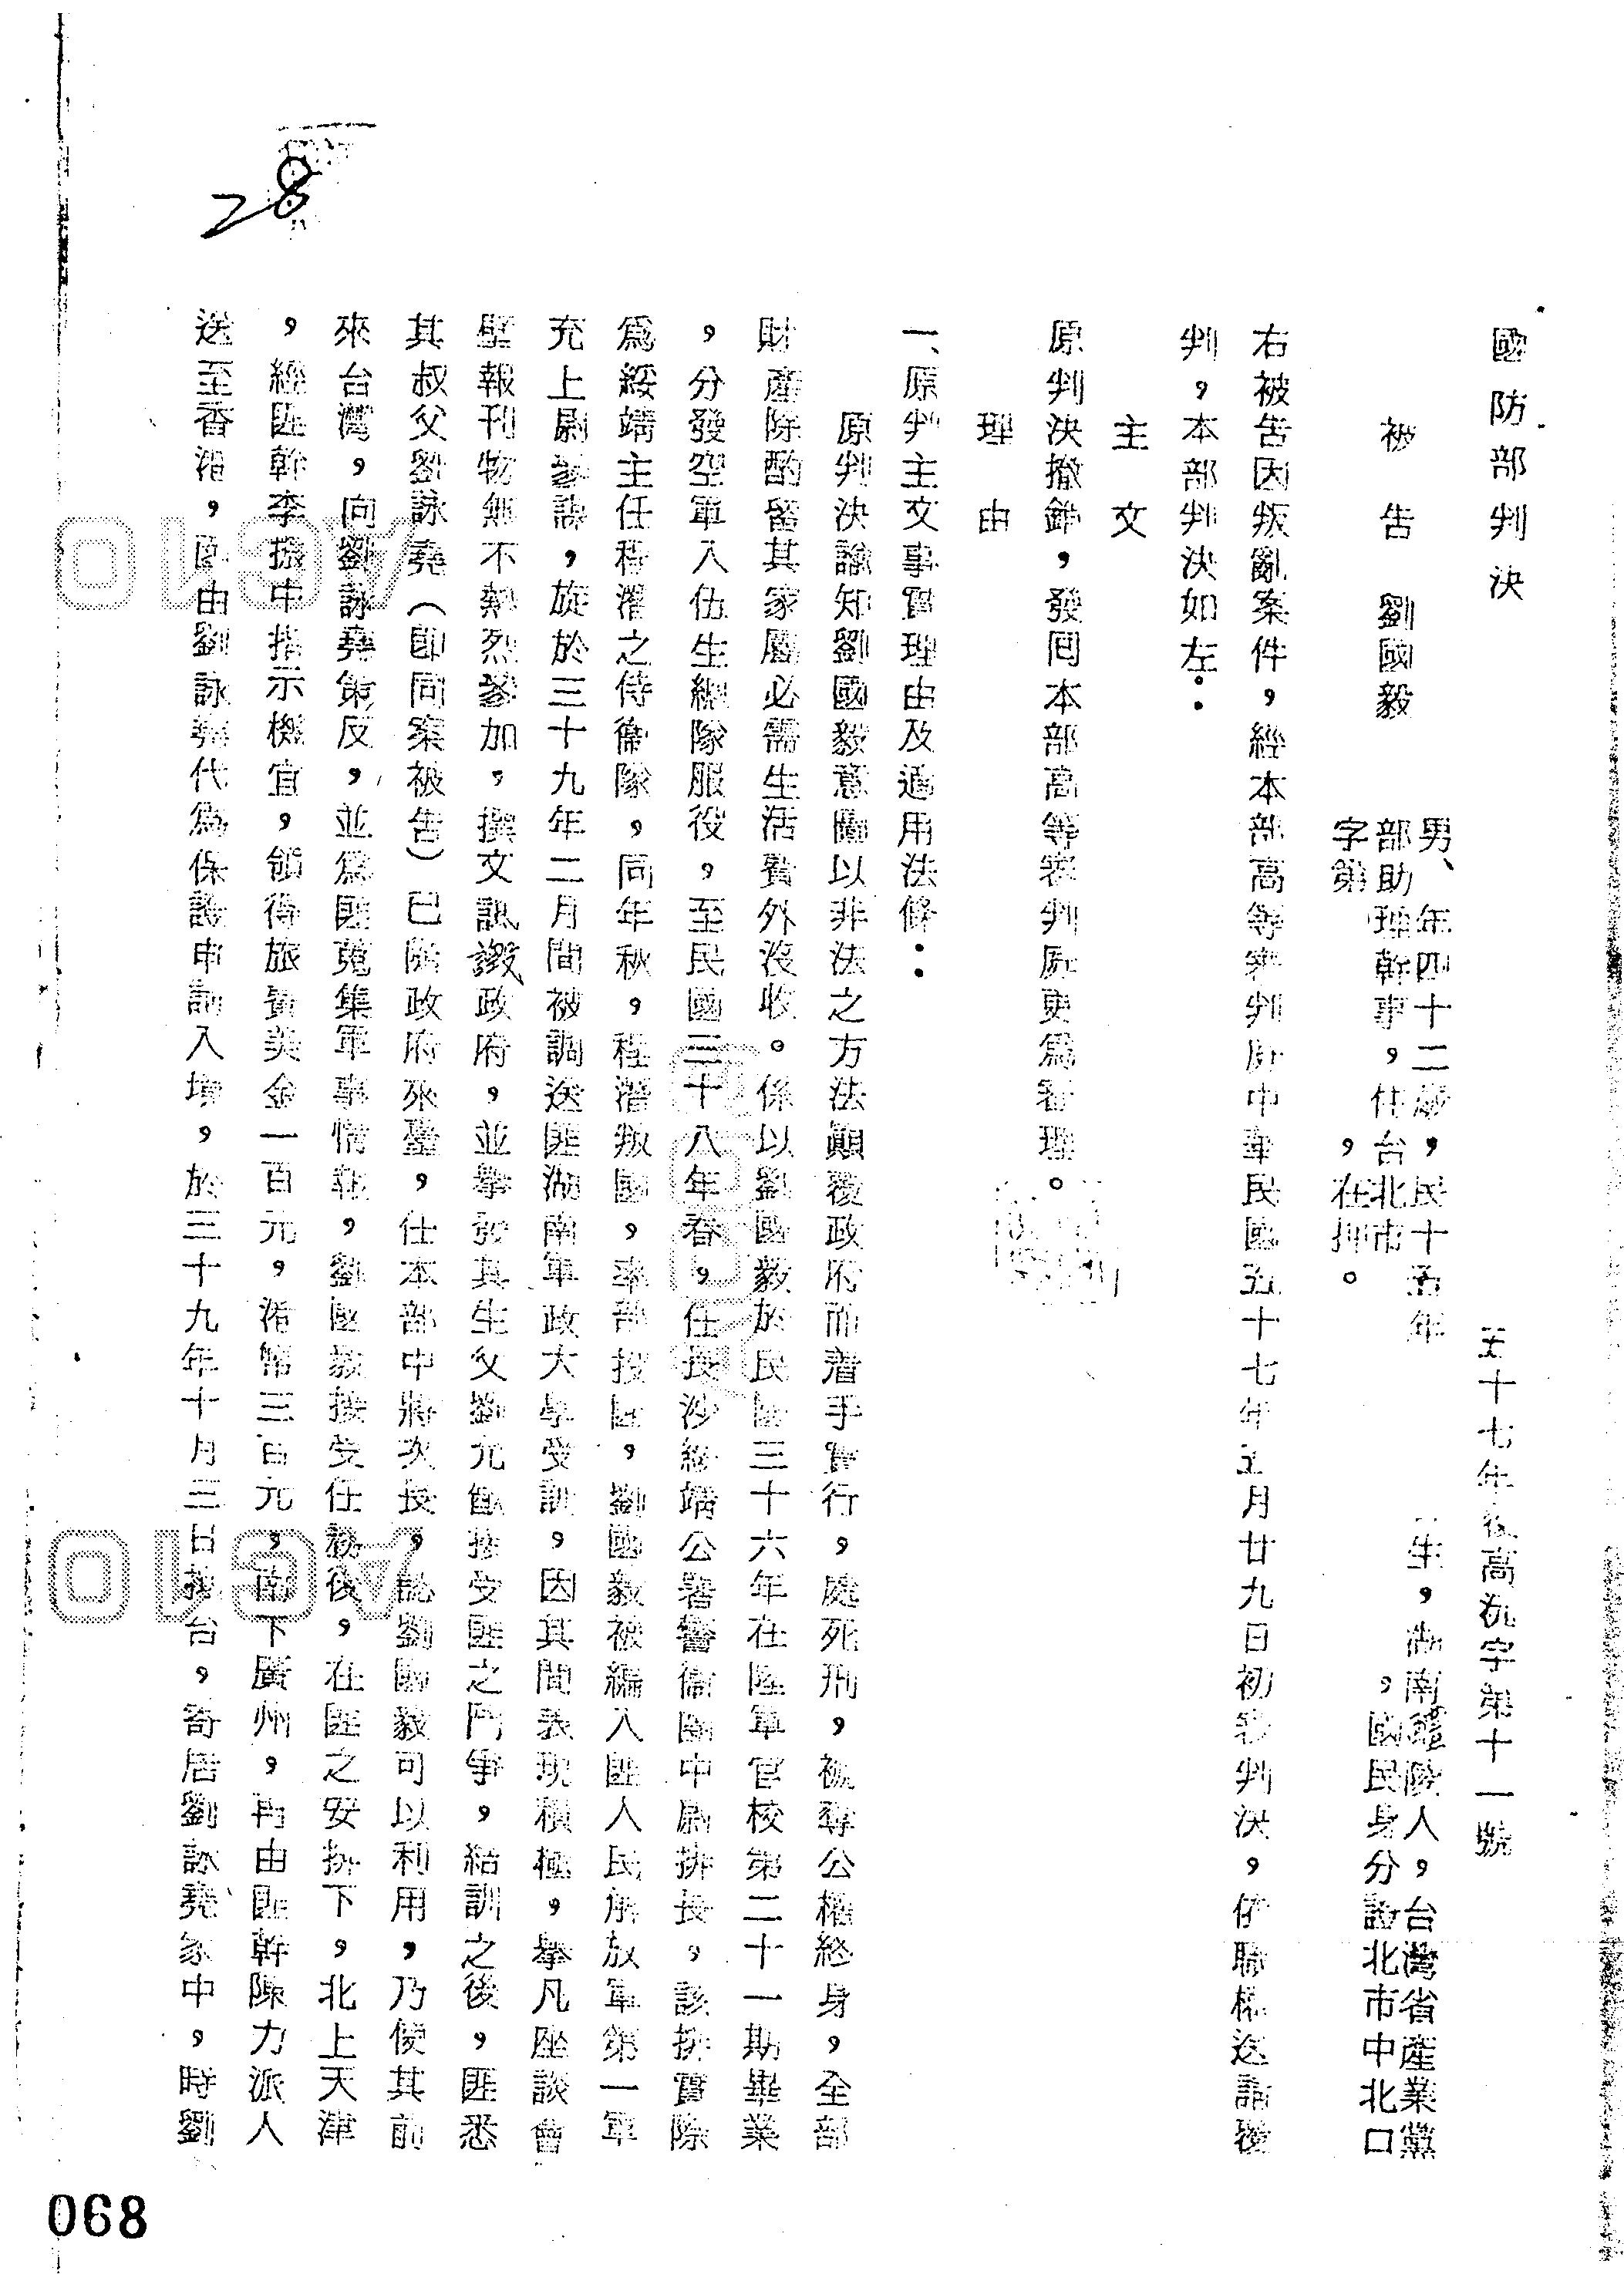 28
國防部判決
五十七年覆高沉字第十一號
被告 劉國毅 男、年四十二歲,民十五年 生,湖南醴陵人,台灣省產業黨
部助理幹事,住台北市 ,國民身分證北市中北口
字第 ,在押。
右被告因叛亂案件,經本部高等審判庭中華民國五十七年五月廿九日初審判決,依職權送請覆
判,本部判決如左:
主文
原判決撤銷,發回本部高等審判庭更為審理。
理由
一、原判主文事實理由及適用法條:
原判決諭知劉國毅意圖以非法之方法顛覆政府而着手實行,處死刑,褫奪公權終身,全部
財產除酌留其家屬必需生活費外沒收。係以劉國毅於民國三十六年在陸軍官校第二十一期畢業
,分發空軍入伍生總隊服役,至民國三十八年春,任長沙綏靖公署警衞團中尉排長,該排實除
為綏靖主任程潛之侍衞隊,同年秋,程潛叛國,率部投匪,劉國毅被編入匪人民解放軍第一軍
充上尉參謀,旋於三十九年二月間被調送匪湖南軍政大學受訓,因其間表現積極,舉凡座談會
壁報刊物無不熱烈參加,撰文譏諷政府,並舉發其生父劉元 接受匪之鬥爭,結訓之後,匪悉
其叔父劉詠堯(即同案被告)已隨政府來臺,任本部中將次長,認劉國毅可以利用,乃使其前
來台灣,向劉詠堯策反,並為匪蒐集軍事情報,劉國毅接受任務後,在匪之安排下,北上天津
,經匪幹李振中指示機宜,領得旅費美金一百元,港幣三百元,南下廣州,再由匪幹陳力派人
送至香港,函由劉詠堯代為保證申請入境,於三十九年十月三日抵台,寄居劉詠堯家中,時劉
068